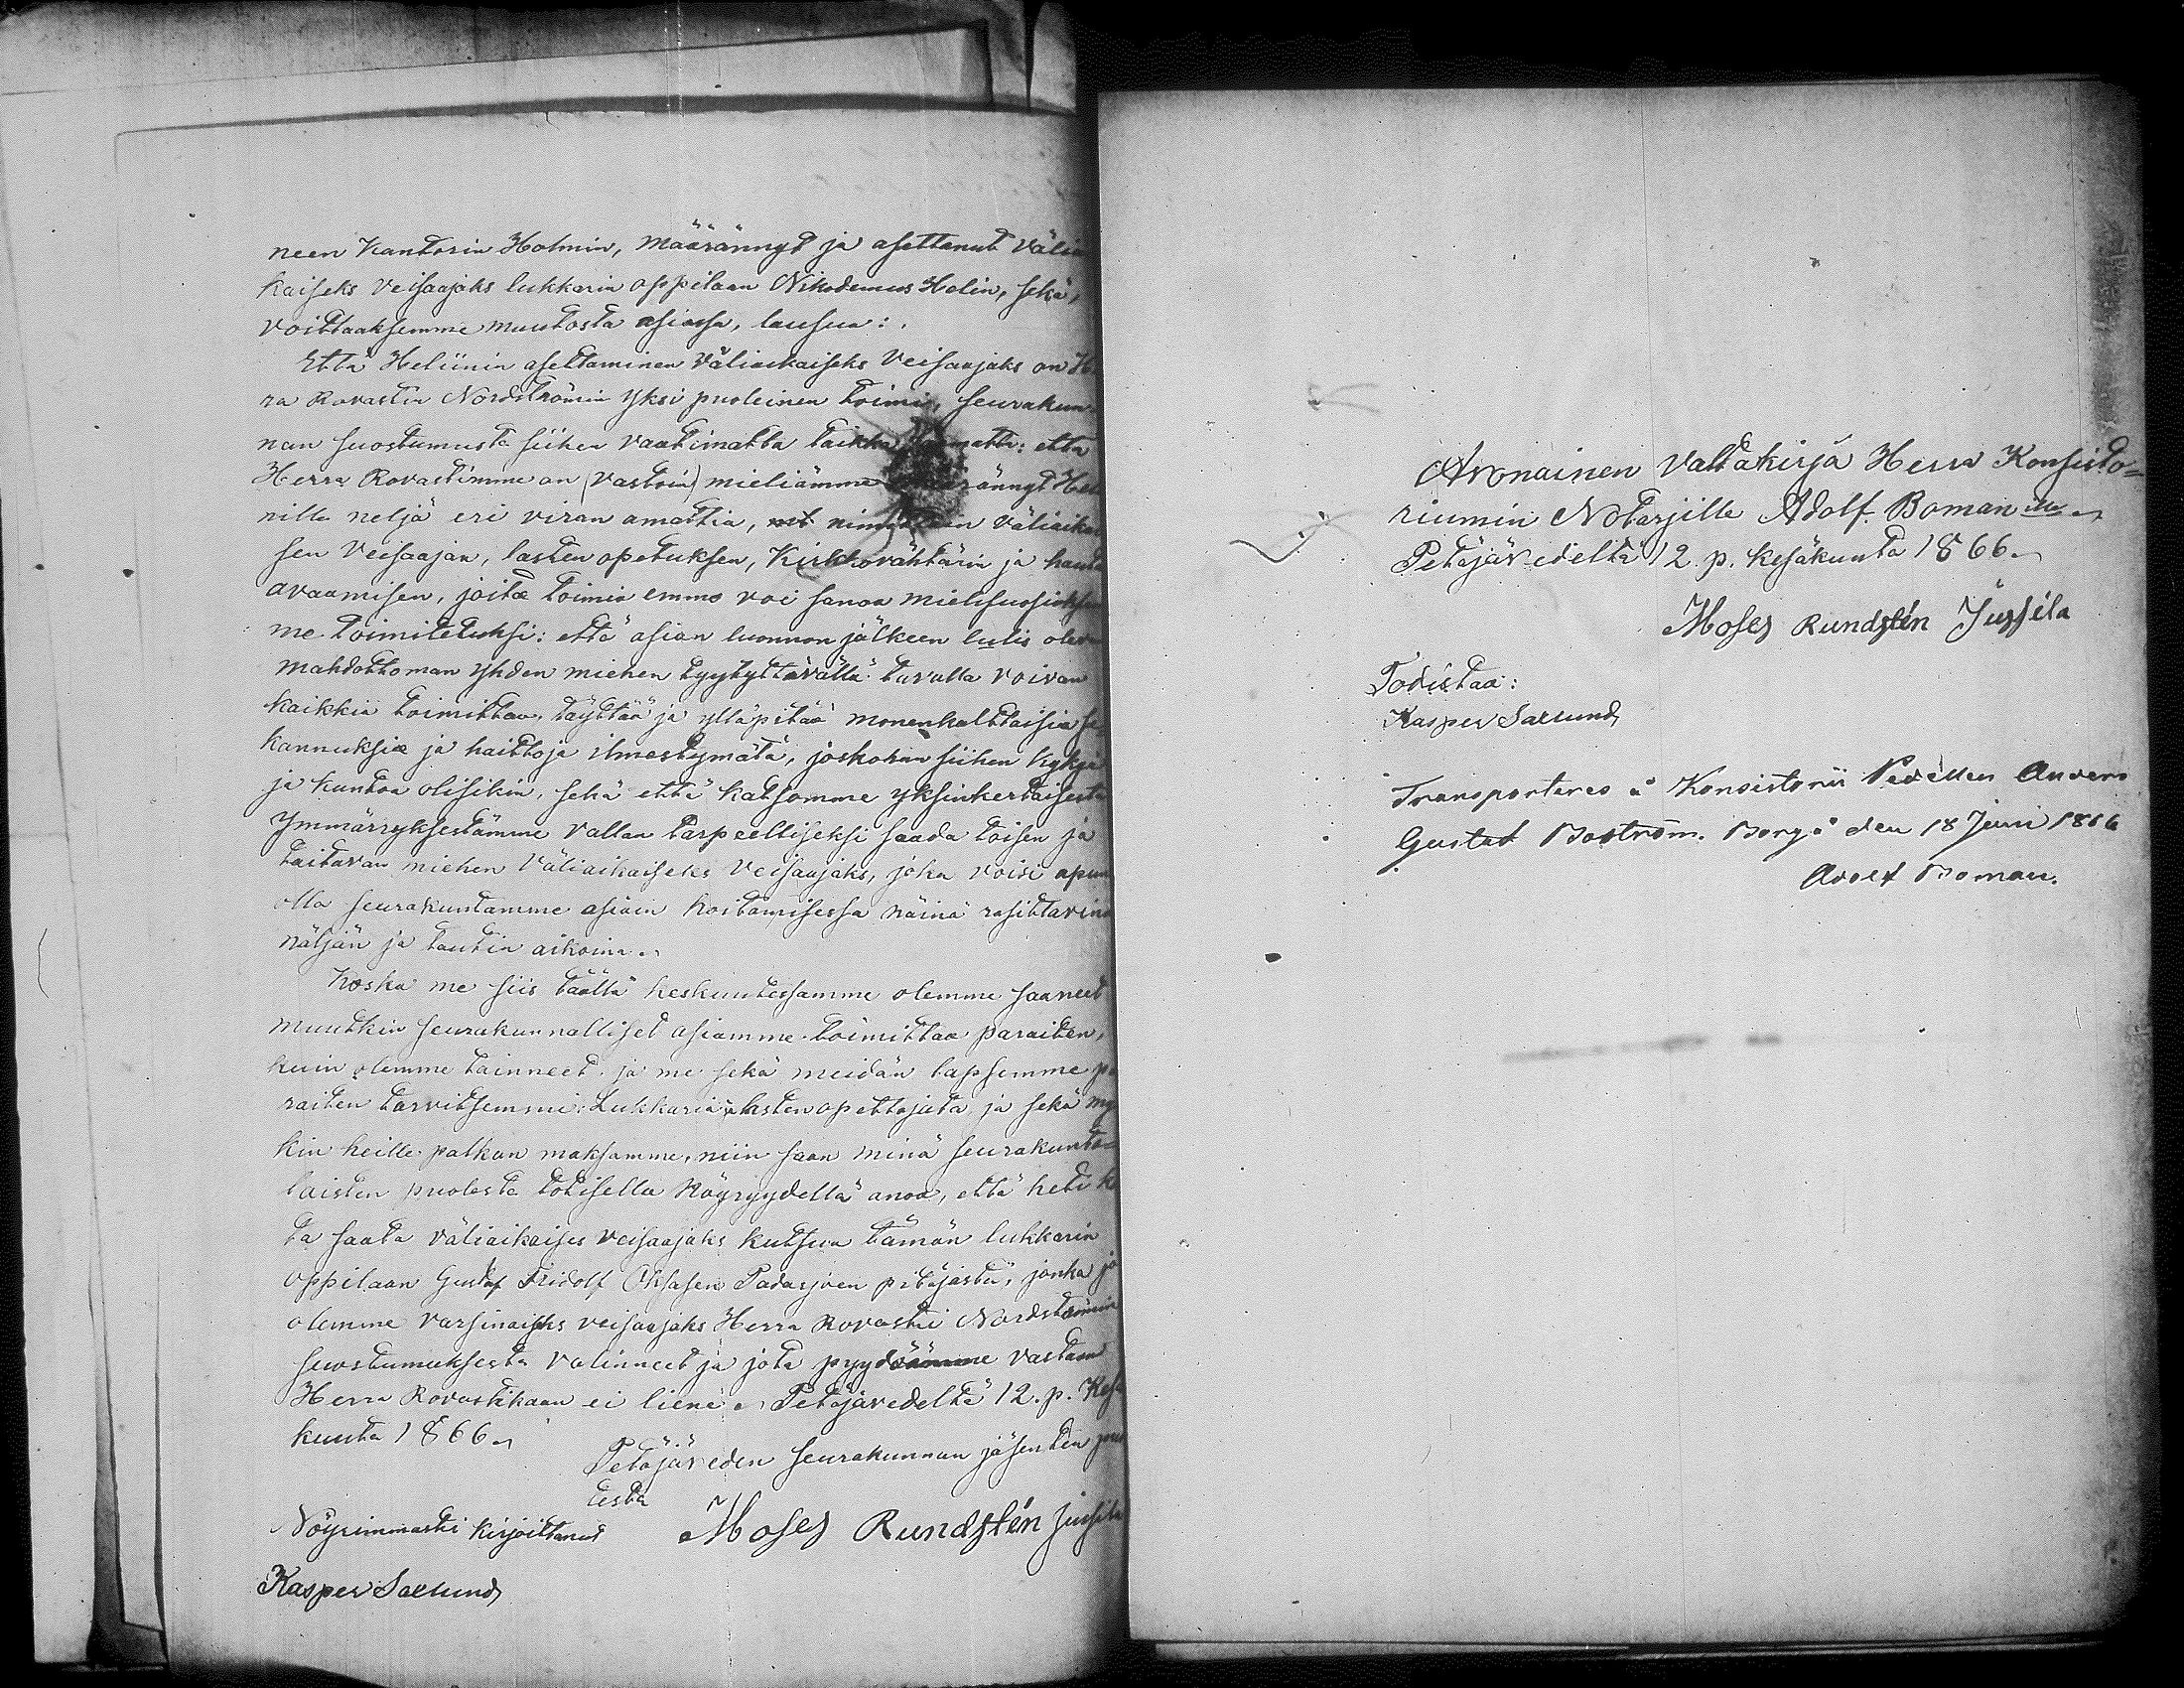 neen Kanttorin Holmin, määrännyt ja asettanut välia
kaiseks Veisaajaks lukkarin oppilaan Nikodemus Helin, sekä,
voittaaksemme muutosta asiassa, lausua:
Että Heliinin asettaminen Väliaikaiseks Veisaajaks on He
ra Rovastin Nordströmin yksi puoleinen toimi, seurakun
nan suostumusta siihen vaatimatta taikka : että
Herra Rovastimme on (vastoin) mieliämme määrännyt Hel
nille neljä eri viran amattia, nimittäin väliaikai
sen Veisaajan, lasten opetuksen, Kirkkovähtärin ja hauta
avaamisen, joita toimia emme voi sanoa mielisuosioksem
me toimitetuksi: että asian luonnon jälkeen lulis oleva
mahdottoman yhden miehen tyytyttävällä tavalla voivan
kaikkia toimittaa, täyttää ja ylläpitää monenhalttaisia se
kannuksia ja haittoja ilmestymätä, joskohan siihen kykyä
ja kuntoa olisikin, sekä että katsomme yksinkertaisesta
Ymmärryksestämme vallan tarpeelliseksi saada toisen ja
taitavan miehen Väliaikaiseks Veisaajaks, joka voisi apuna
olla seurakuntamme asiain hoitamisessa näinä rasittavina
näljän ja tautin aikoina.
Koska me siis täällä keskuutessamme olemme saaneet
muutkin seurakunnalliset asiamme toimittaa paraiten,
kuin olemme tainneet ja me sekä meidän lapsemme pa
raiten tarvitsemme Lukkaria lasten opettajata ja sekä my
kin heille palkan maksamme, niin saan minä seurakunta=
laisten puolesta totisella Nöyryydellä anoa, että heti k
ta saata väliaikaises veisaajaks kutsua tämän lukkarin
oppilaan Gustaf Fridolf Oksasen Padasjoen pitäjästä, jonka jo
olemme varsinaiseks veisaajaks Herra Rovasti Nordströmin
suostumuksesta valinneet ja jota pyydöämme vastaan
Herra Rovastikaan ei liene. Petäjävedeltä 12. p. Kesä
kuuta 1866.
Petäjäveden seurakunnan jäsenten puo
lesta
Nöyrimmästi kirjoittanut Moses Rundstén Jussila
Kasper Saxlund
Avonainen Valtakirja Herra Konsisto=
riumin Notarjille Adolf Boman ille
Petäjävedeltä 12. p. kesäkuuta 1866.
Moses Rundstén Jussila
Todistaa:
Kasper Saxlund
Transporteres å Konsistorii Pedellen Anders
Gustaf Boström. Borgå den 18 Juni 1866
Adolf Boman.